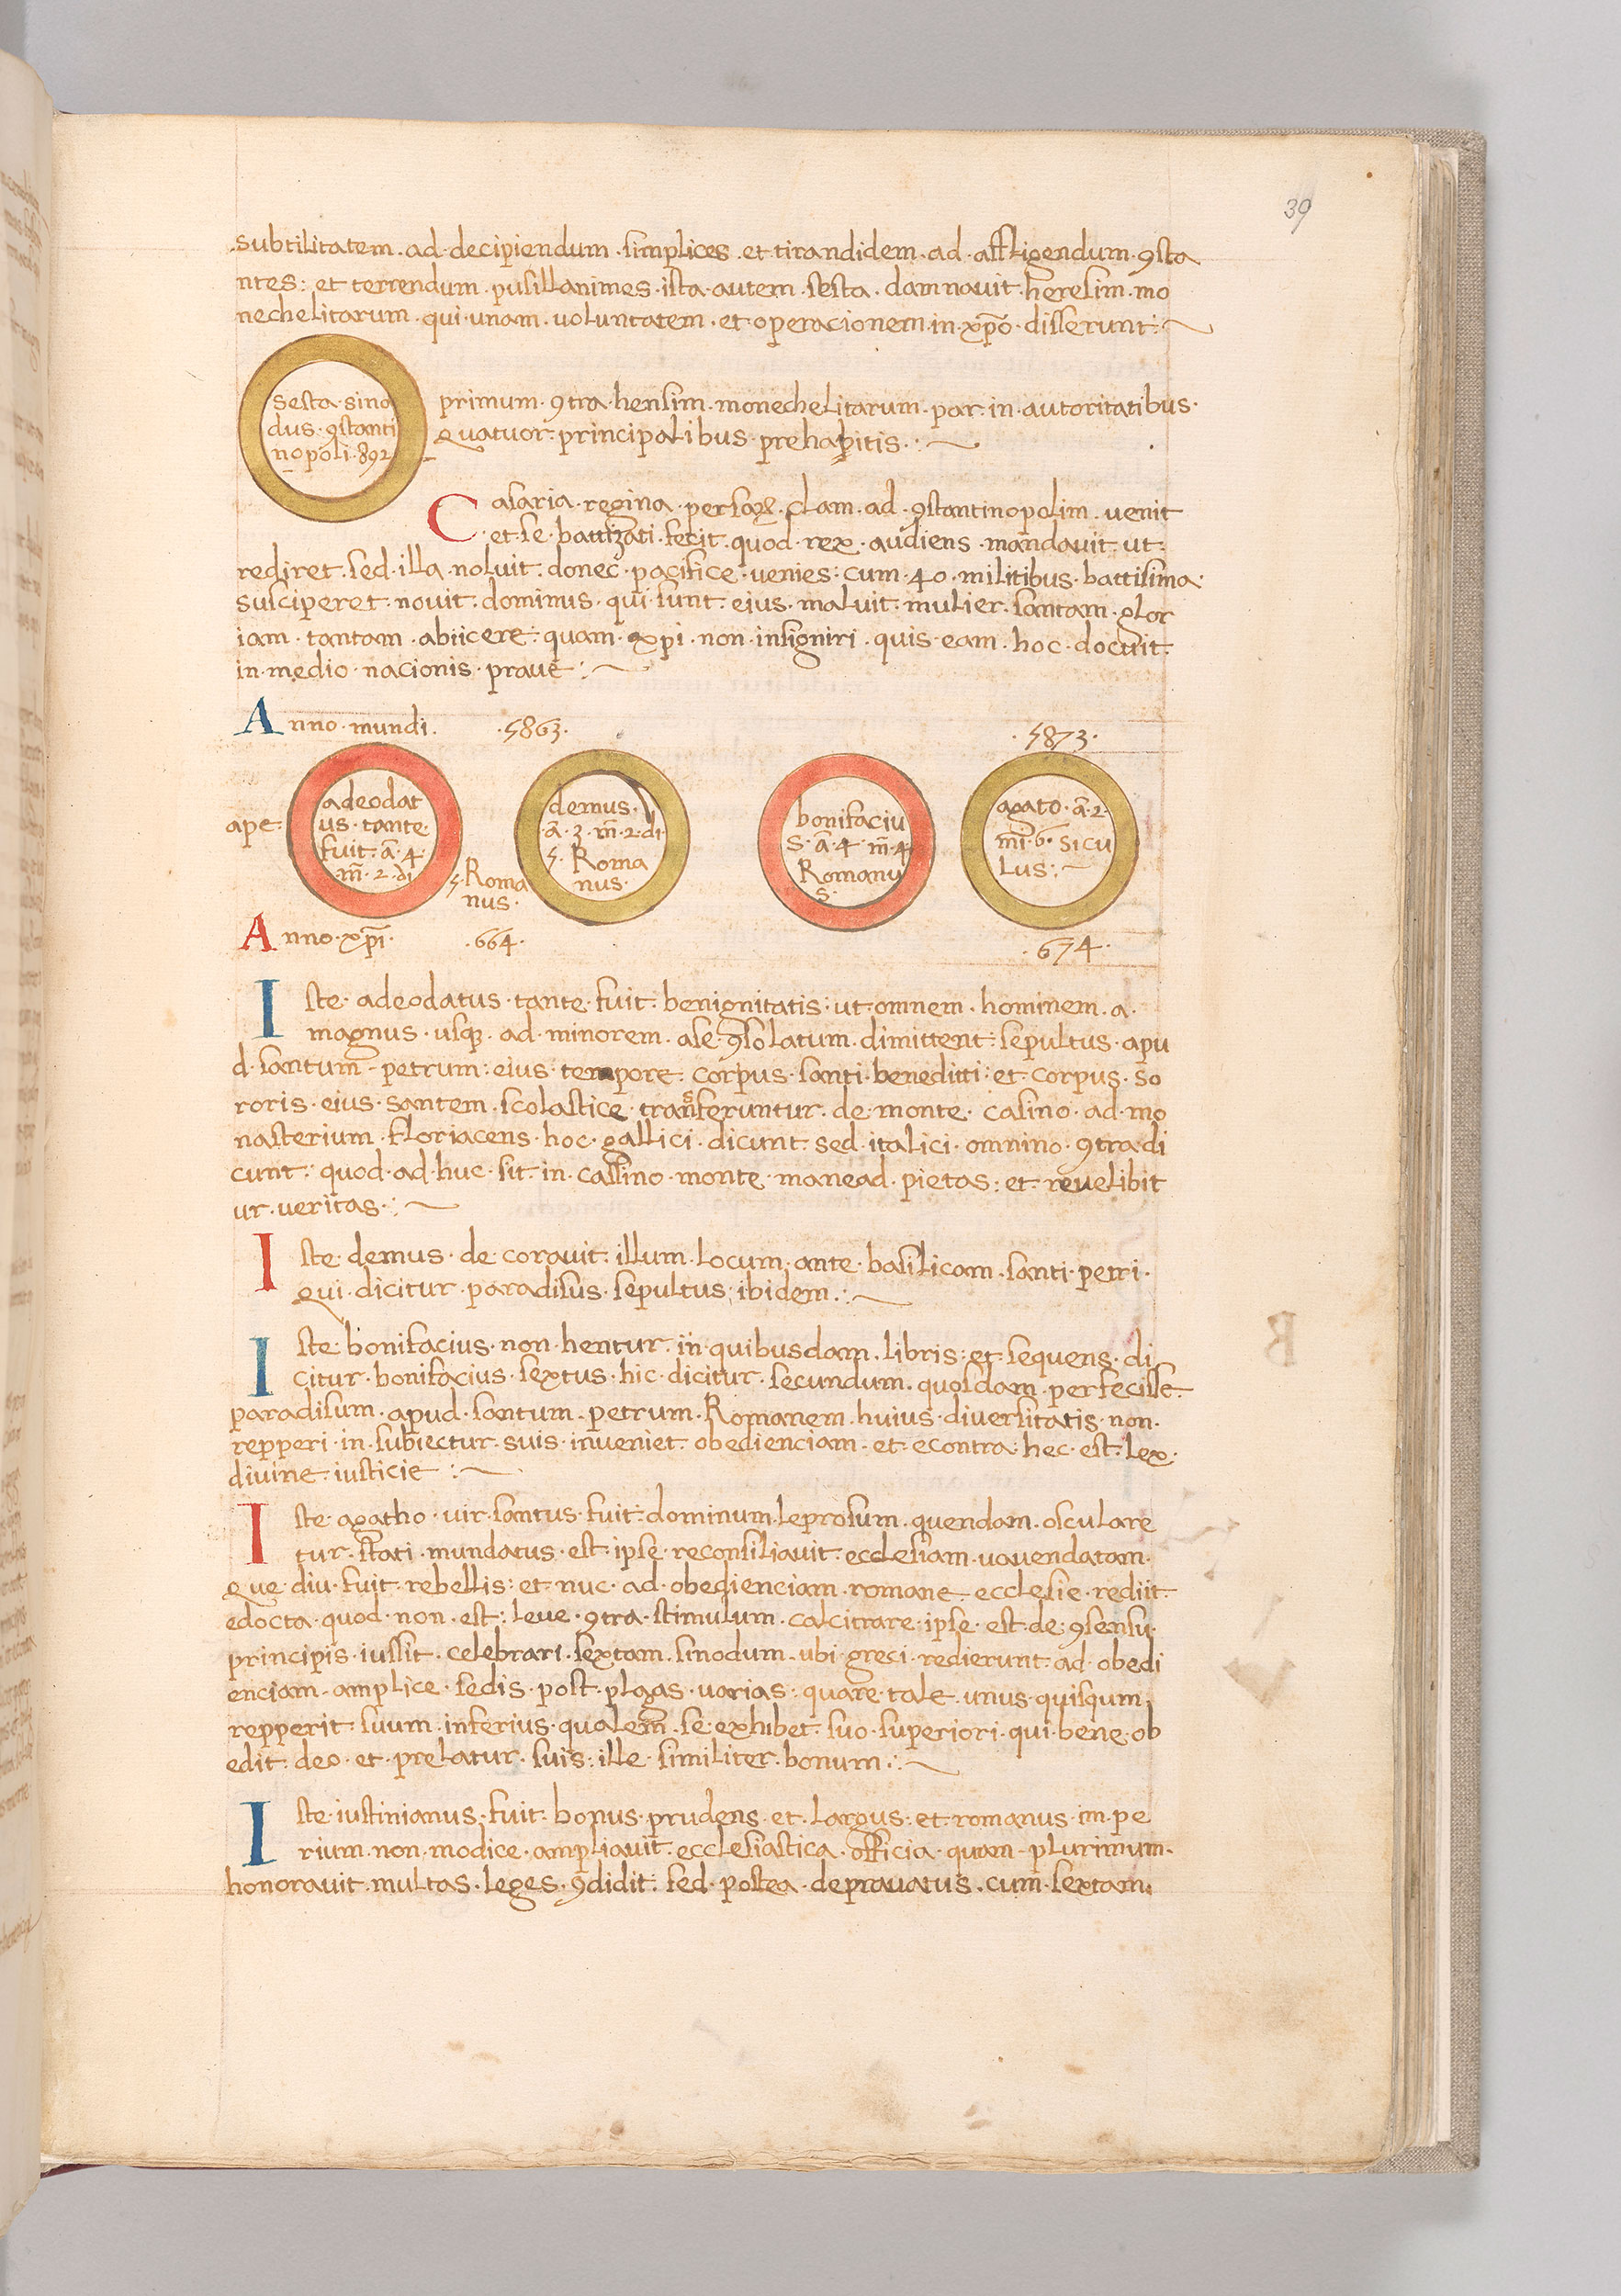 39
subtilitatem · ad · decipiendum · simplices · et tirandidem · ad · affligendum · ꝯsta
ntes : et terrendum · pusillanimes · ista · autem · sesta · damnavit · heresim · mo
nechelitarum · qui · unam · voluntatem · et operacionem in · xp̄o · disserunt : ~
sesta · sino
dus · ꝯstanti
nopoli · 892
primum · ꝯtra · hensim · monechelitarum · par · in · autoritatibus ·
quatuor · principalibus · prehabitis · : ~
Casaria · regina · persaꝝ · clam · ad · ꝯstantinopolim · venit
et · se · battizati · fecit · quod · rex · audiens · mandavit · ut
rediret · sed · illa · noluit · donec · pacifice · venies : cum · 40 · militibus · battisima
susciperet · novit · dominus · qui · sunt · eius · maluit · mulier · santam · glor
iam · tantam · abiicere : quam · xp̄i · non · insigniri · quis · eam · hoc · docuit
in · medio · nacionis · prave : ~
Anno · mundi · · 5863 · · 5873 ·
ape
adeodat
us · tante
fuit · ā · 4
m̄ · 2 · di
5 · Roma
nus ·
demus ·
ā · 3 · m̄ · 2 · di
5 · Roma
nus ·
bonifaciu
s · ā · 4 · m̄ · 4
Romanu
s ·
agato · ā · 2 ·
m̄ · 6 · sicu
lus : ~
Anno · xp̄i · · 664 · · 674 ·
Iste · adeodatus · tante · fuit · benignitatis : ut · omnem · hominem · a ·
magnus · usqꝫ · ad · minorem · ase · ꝯsolatum · dimittent : sepultus · apu
d · santum · petrum : eius · tempore · corpus · santi · beneditti : et · corpus · so
roris · eius · santem · scolastice · transferuntur · de · monte · casino · ad · mo
nasterium · floriacens · hoc · gallici · dicunt · sed · italici · omnino · ꝯtradi
cunt : quod · ad · huc · sit · in · cassino · monte · manead · pietas : et · revelibit
ur · veritas · : ~
Iste · demus · de coravit · illum · locum · ante · basilicam · santi · petri ·
qui · dicitur · paradisus · sepultus · ibidem · : ~
Iste · bonifacius · non · hentur · in · quibusdam · libris : et · sequens · di
citur · bonifacius · sextus · hic · dicitur · secundum · quosdam · perfecisse
paradisum · apud · santum · petrum · Romanem · huius · diversitatis · non ·
repperi · in · subiectur · suis · inveniet · obedienciam · et · econtra · hec · est · lex ·
divine · iusticie : ~
Iste · agatho · vir · santus · fuit · dominum · leprosum · quendam · osculare
tur · stati · mundatus · est · ipse · reconsiliavit · ecclesiam · vavendatam ·
que · diu · fuit · rebellis : et · nuc · ad · obedienciam · romane · ecclesie · rediit
edocta · quod · non · est : leve · ꝯtra · stimulum · calcitrare · ipse · est · de · ꝯsensu ·
principis · iussit · celebrari · sextam · sinodum · ubi · greci · redierunt · ad · obedi
enciam · amplice · sedis · post · plagas · varias : quare · tale · unus · quisqum
repperit · suum · inferius · qualem̄ · se · exhibet · suo · superiori · qui · bene · ob
edit · deo · et · prelatur · suis : ille · similiter · bonum · : ~
Iste · iustinianus · fuit · bonus · prudens · et · largus · et · romanus · im · pe
rium · non · modice · ampliavit · ecclesiastica · officia · quam · plurimum ·
honoravit · multas · leges · ꝯdidit : sed · postea · depravatus · cum · sextam ·